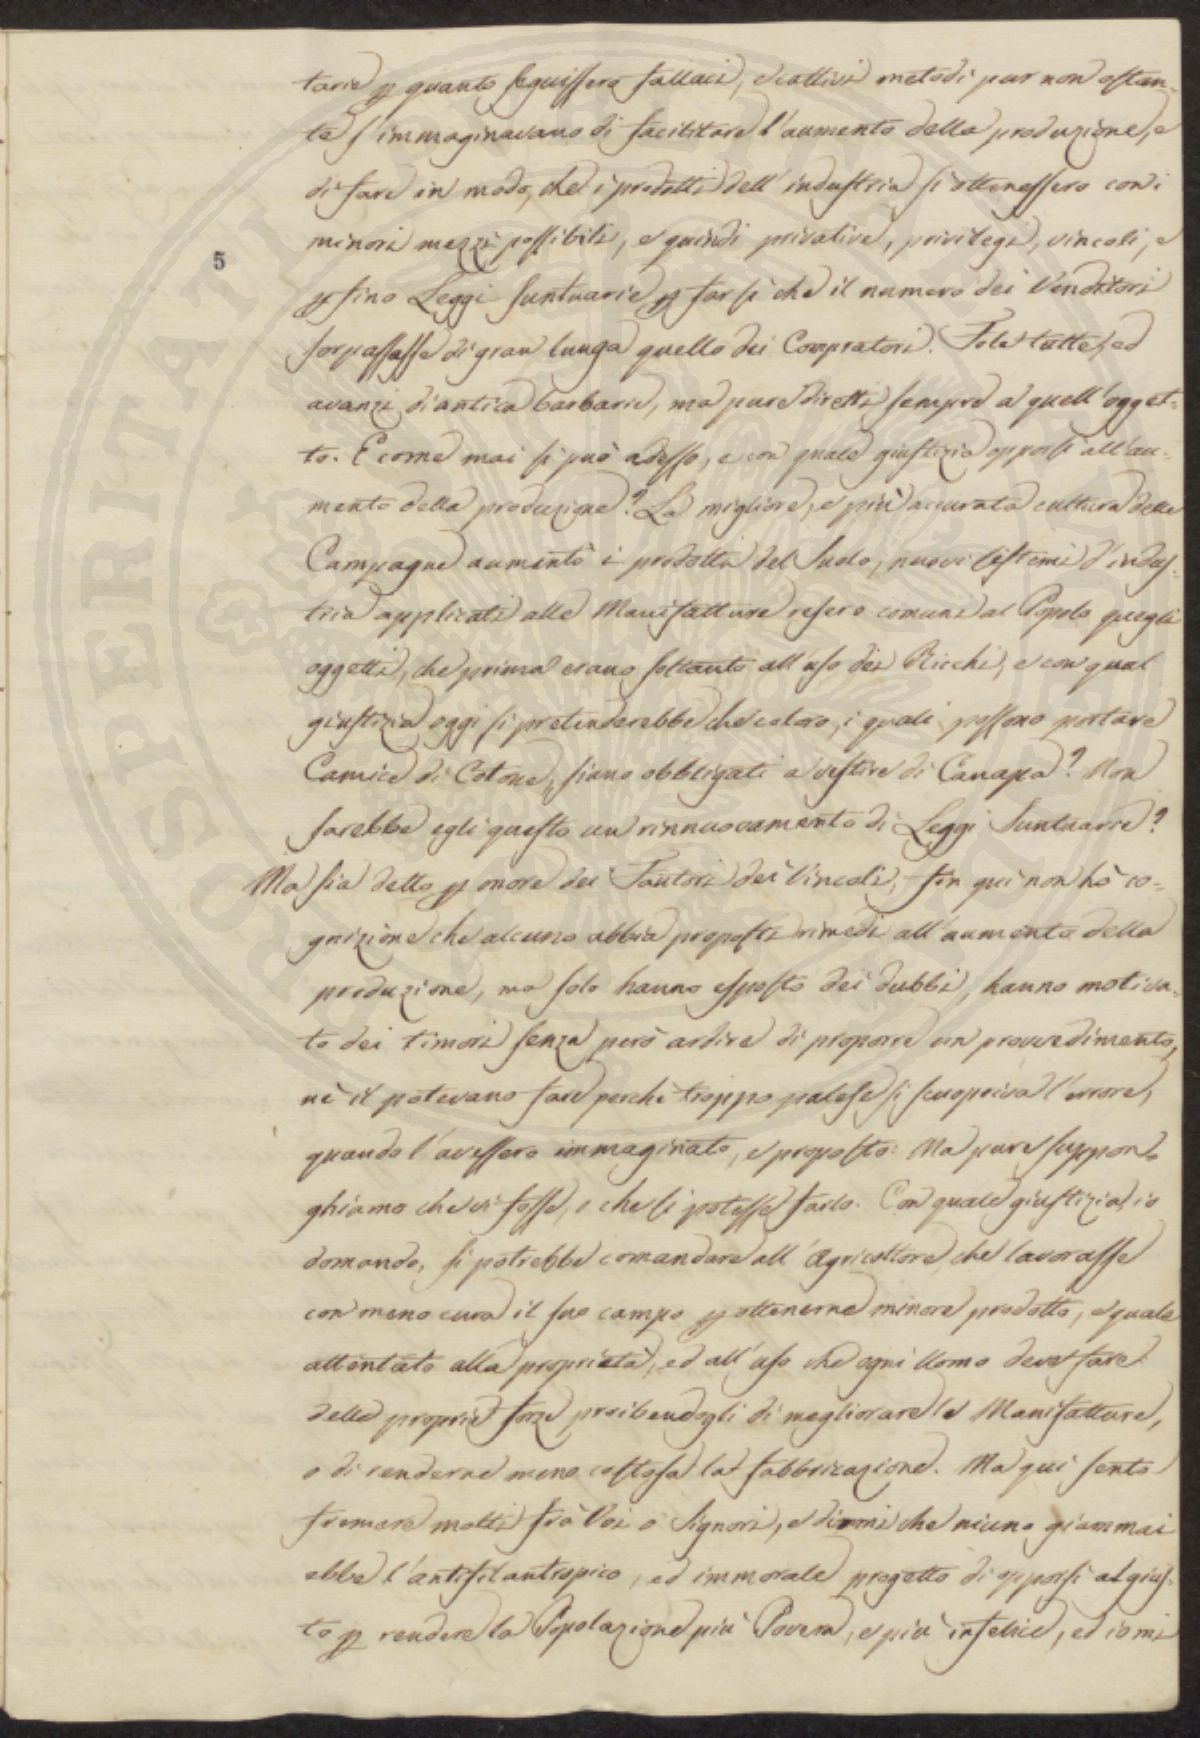 tarie p quanto seguissero fallaci, e cattivi metodi pur non ostan-
te s'immaginavano di facilitare l'aumento della produzione, e
di fare in modo, che i prodotti dell'industria si ottenessero con i
minori mezzi possibili, e quindi privative, privilegi, vincoli, e
5
p fino Leggi Suntuarie p far sì che il numero dei Venditori
sorpassasse di gran lunga quello dei Compratori. Fole tutte, ed
avanzi d'antica barbarie, ma pure diretti sempre a quell'ogget-
to. E come mai si può adesso, e con quale giustizia opporsi all'au-
mento della produzione? La migliore, e più accurata cultura delle
Campagne aumentò i prodotti del Suolo, nuovi sistemi d'indus-
tria applicati alle Manifatture resero comuni al Popolo quegli
oggetti, che prima erano soltanto all'uso dei Ricchi, e con qual
giustizia oggi si pretenderebbe che coloro, i quali possono portare
Camice di Cotone, siano obbligati a vestire di Canapa? Non
sarebbe egli questo un rinnuovamento di Leggi Suntuarie?
Ma sia detto p onore dei Fautori dei Vincoli, fin qui non hò co-
gnizione che alcuno abbia proposti rimedi all'aumento della
produzione, ma solo hanno esposto dei dubbi, hanno motiva-
to dei timori senza però ardire di proporre un provvedimento,
nè il potevano fare perchè troppo palese si scuopriva l'errore,
quando l'avessero immaginato, e proposto: Ma pure suppon-
ghiamo che vi fosse, e che si potesse farlo. Con quale giustizia, io
domando, si potrebbe comandare all'Agricoltore, che lavorasse
con meno cura il suo campo p ottenerne minore prodotto, e quale
attentato alla proprietà, ed all'uso che ogni Uomo deve fare
delle proprie forze, proibendogli di megliorare le Manifatture,
o di renderne meno costosa la fabbricazione. Ma qui sento
fremere molti frà Voi o Signori, e dirmi che niuno giammai
ebbe l'antifilantropico, ed immorale progetto di opporsi al gius-
to p rendere la Popolazione più Povera, e più infelice, ed io mi